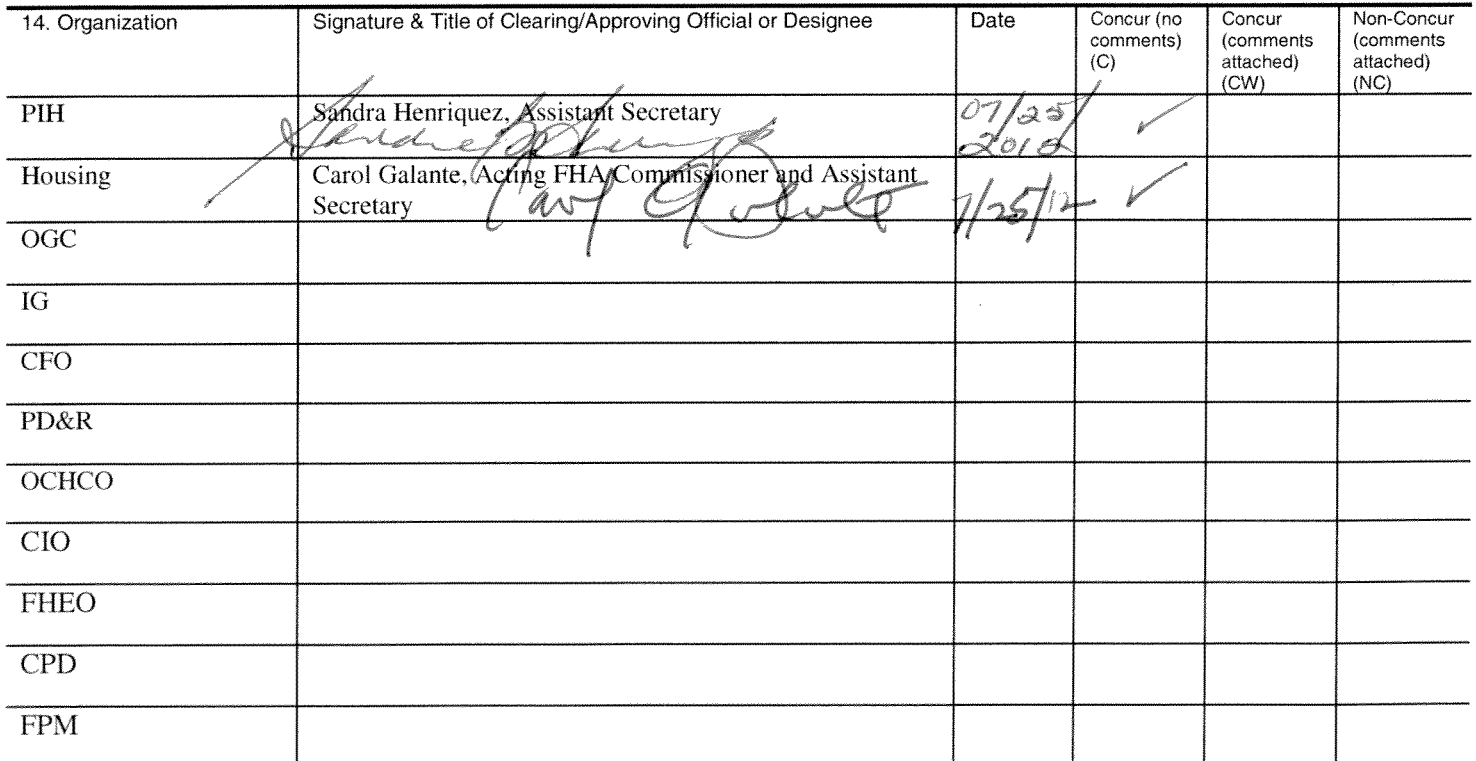 14. Organization Signature & Title of Clearing/Approving Official or Designee Date Concur (no comments) (C) Concur (comments attached) (CW) Non-Concur (comments attached) (NC)
PIH Sandra Henriquez, Assistant Secretary 07/25/2012 ✓
Housing Carol Galante, Acting FHA Commissioner and Assistant
Secretary Carol Galante 7/25/12 ✓
OGC
IG
CFO
PD&R
OCHCO
CIO
FHEO
CPD
FPM